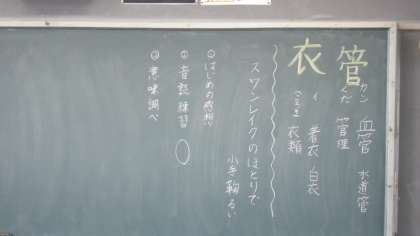 管 カン 血管 水道管
くだ 管理
衣 イ 着衣 白衣
ころも 衣類
スワンレイクのほとりで
小手鞠るい
①はじめの感想
②音読練習
③意味調べ